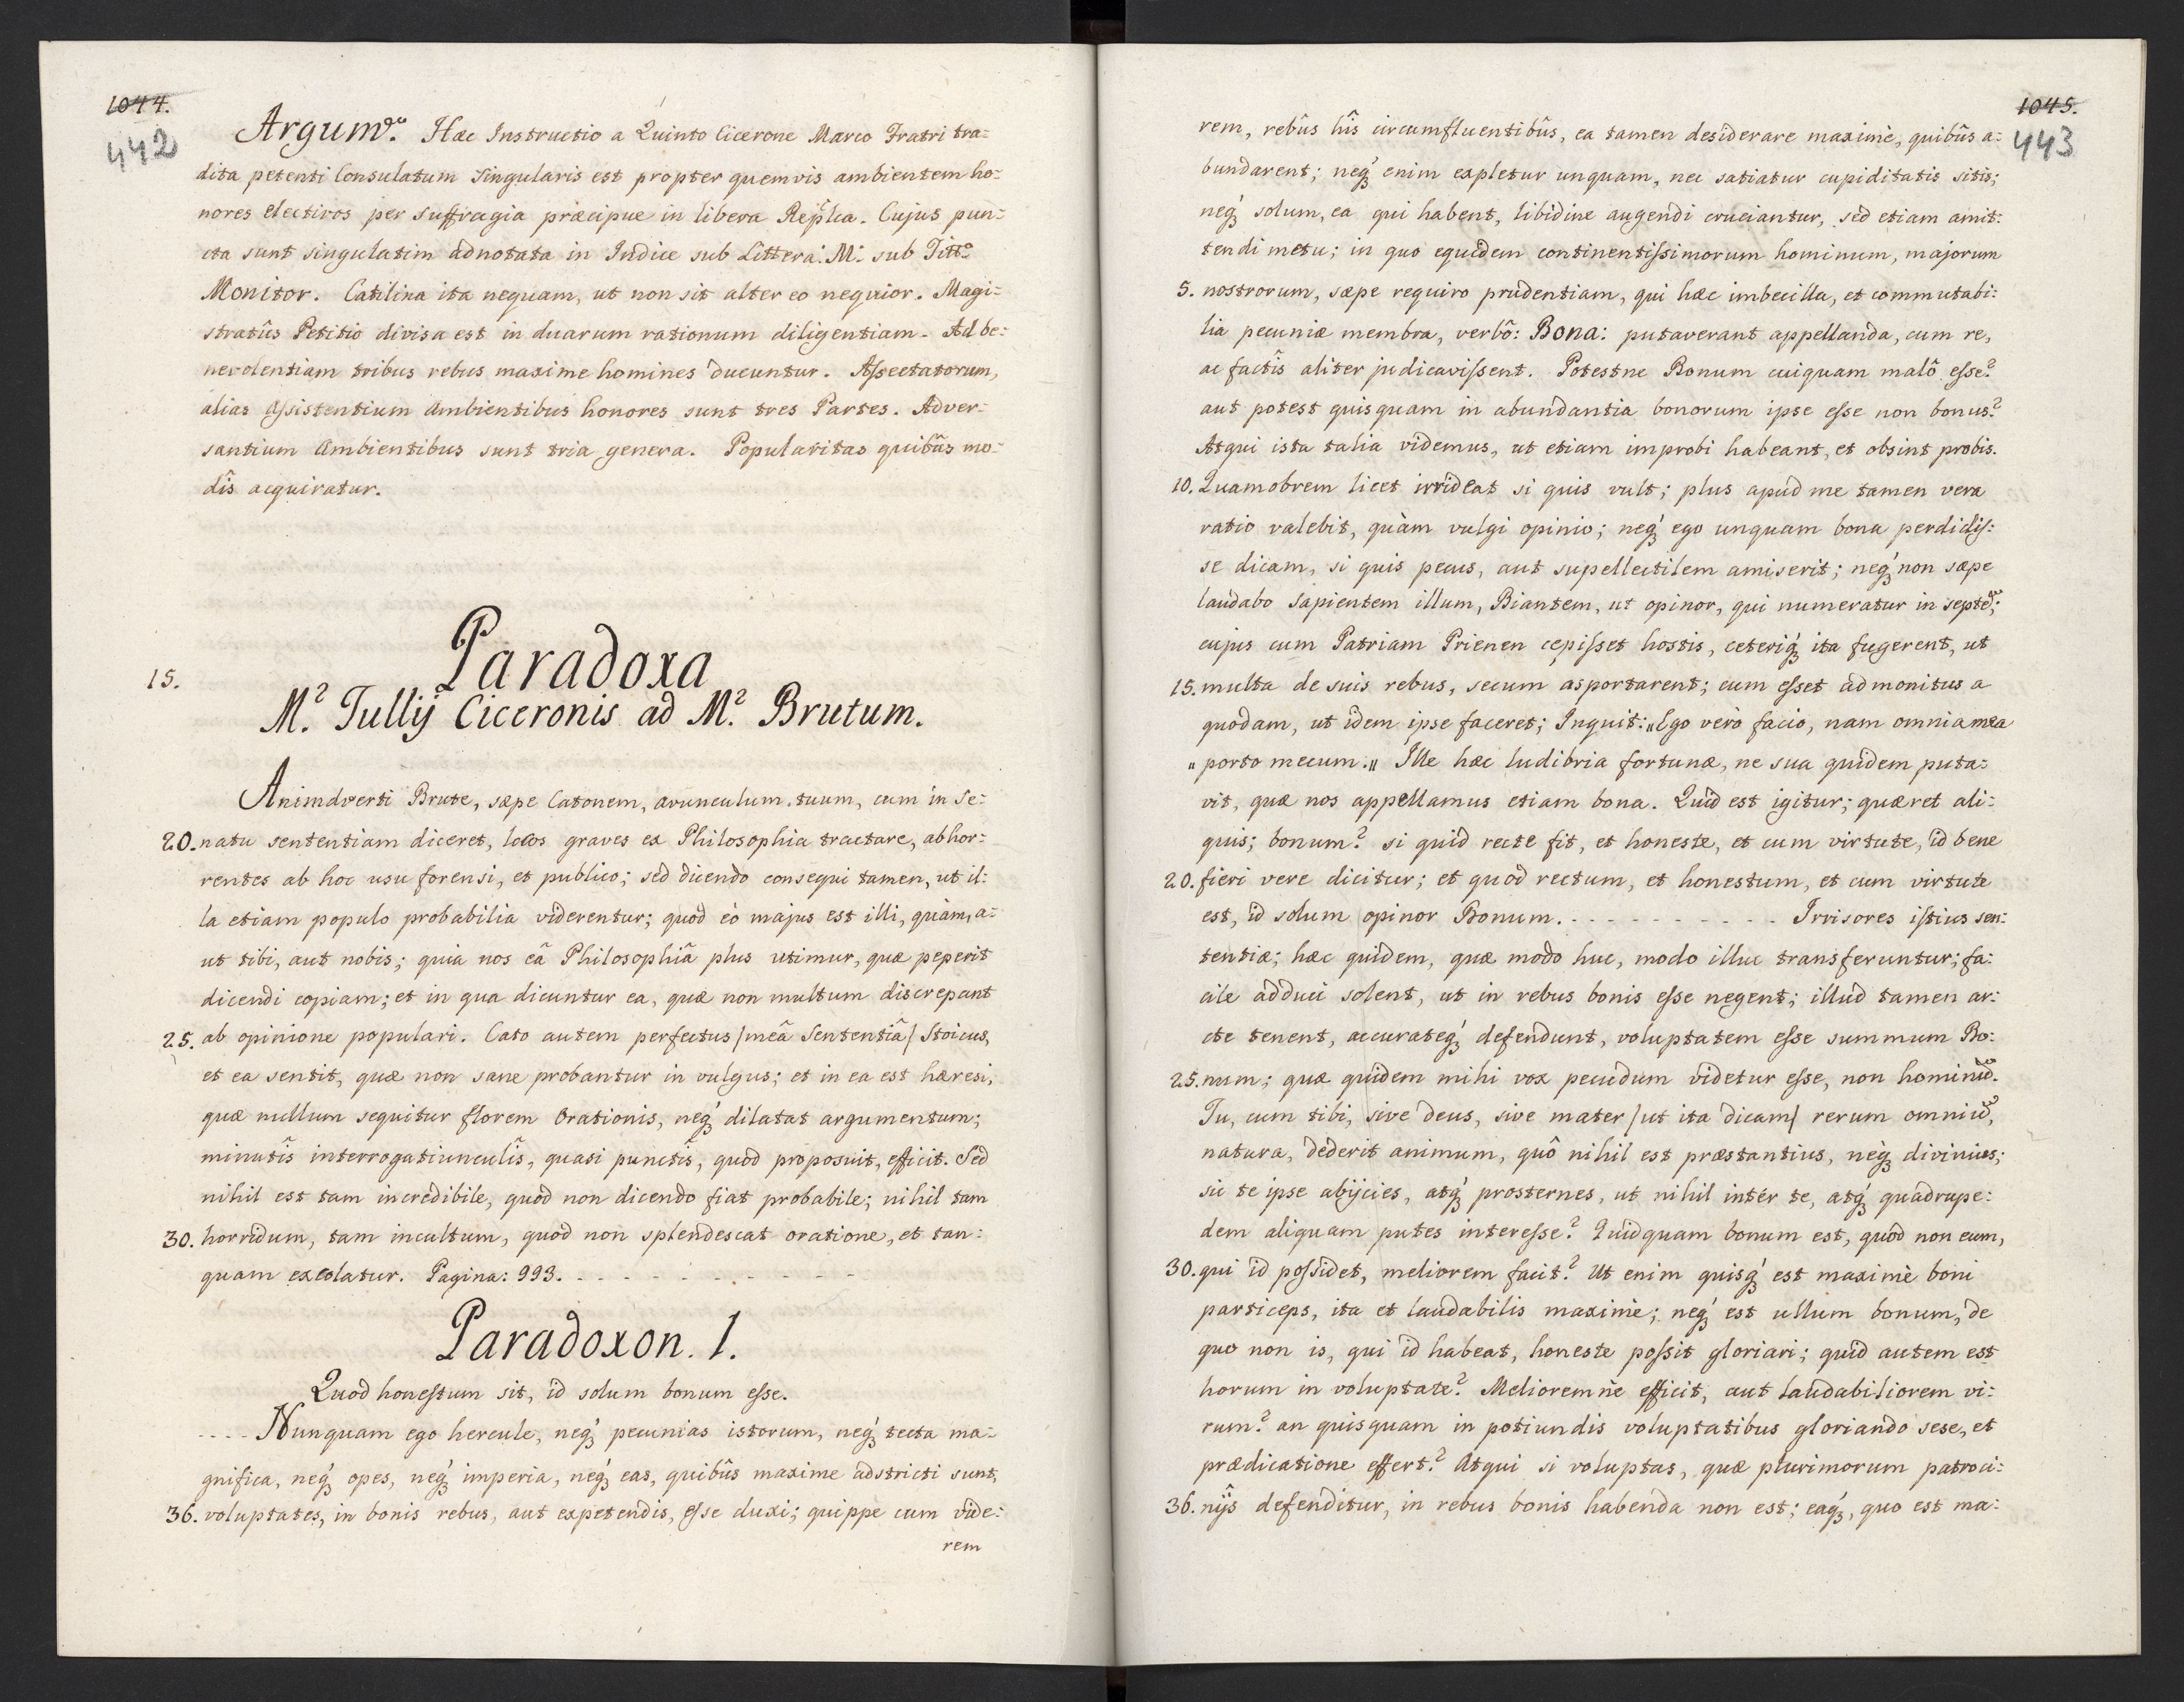 1044.
442
Argum. Hæc Instructio a Quinto Cicerone Marco Fratri tra=
dita petenti Consulatum Singularis est propter quemvis ambientem ho=
nores electivos per suffragia præcipue in libera Repl̃ca. Cujus pun=
cta sunt singulatim adnotata in Indice sub Littera: M: sub Titto
Monitor. Catilina ita nequam, ut non sit alter eo nequior. Magi=
stratûs Petitio divisa est in duarum rationum diligentiam. Ad be=
nevolentiam tribus rebus maxime homines ducuntur. Aſsectatorum,
alias Aſsistentium Ambientibus honores sunt tres Partes. Adver=
santium Ambientibus sunt tria genera. Popularitas quibûs mo=
dîs acquiratur.
15. Paradoxa
M.² Tullij Ciceronis ad M.² Brutum.
Animdverti Brute, sæpe Catonem, avunculum tuum, cum in Se=
20. natu sententiam diceret, locos graves ex Philosophia tractare, abhor=
rentes ab hoc usu forensi, et publico; sed dicendo consequi tamen, ut il=
la etiam populo probabilia viderentur; quod eò majus est illi, quàm, a=
ut tibi, aut nobis; quia nos eâ Philosophiâ plus utimur, quæ peperit
dicendi copiam; et in qua dicuntur ea, quæ non multum discrepant
25. ab opinione populari. Cato autem perfectus /meâ Sententiâ/ Stoicus,
et ea sentit, quæ non sane probantur in vulgus; et in ea est hæresi,
quæ nullum sequitur florem Orationis, neq́ dilatat argumentum;
minutîs interrogatiunculîs, quasi punctîs, quod proposuit, efficit. Sed
nihil est tam incredibile, quod non dicendo fiat probabile; nihil tam
30. horridum, tam incultum, quod non splendescat oratione, et tan=
quam excolatur. Pagina: 993. - - - - - - - - - -
Paradoxon. 1.
Quod honeſtum sit, id solum bonum eſse.
- - - - Nunquam ego hercule, neq́ pecunias istorum, neq́ tecta ma=
gnifica, neq́ opes, neq́ imperia, neq́ eas, quibûs maxime adstricti sunt,
36. voluptates, in bonis rebus, aut expetendis, eſse duxi; quippe cum vide=
rem
1045.
443
rem, rebûs hîs circumfluentibûs, ea tamen desiderare maximè, quibûs a=
bundarent; neq́ enim expletur unquam, nec satiatur cupiditatis sitis;
neq́ solum, ea qui habent, libidine augendi cruciantur, sed etiam amit=
tendi metu; in quo equidem continentiſsimorum hominum, majorum
5. nostrorum, sæpe requiro prudentiam, qui hæc imbecilla, et commutabi=
lia pecuniæ membra, verbô: Bona: putaverant appellanda, cum re,
ac factîs aliter judicaviſsent. Potestne Bonum cuiquam malô eſse?
aut potest quisquam in abundantia bonorum ipse eſse non bonus?
Atqui ista talia videmus, ut etiam improbi habeant, et obsint probis.
10. Quamobrem licet irrideat si quis vult; plus apud me tamen vera
ratio valebit, quàm vulgi opinio; neq́ ego unquam bona perdidiſ=
se dicam, si quis pecus, aut supellectilem amiserit; neq́ non sæpe
laudabo Sapientem illum, Biantem, ut opinor, qui numeratur in septē;
cujus cum Patriam Prienen cepiſset hostis, ceteriq́ ita fugerent, ut
15. multa de suis rebus, secum asportarent; cum eſset admonitus a
quodam, ut idem ipse faceret; Inquit: „Ego verò facio, nam omnia mea
„ porto mecum.„ Ille hæc ludibria fortunæ, ne sua quidem puta=
vit, quæ nos appellamus etiam bona. Quid est igitur; quæret ali=
quis; bonum? si quid recte fit, et honeste, et cum virtute, id bene
20. fieri vere dicitur; et quod rectum, et honestum, et cum virtute
est, id solum opinor Bonum. - - - - - - - - - - - Irrisores iſtius sen=
tentiæ; hæc quidem, quæ modo huc, modo illuc transferuntur; fa=
cile adduci solent, ut in rebus bonis eſse negent; illud tamen ar=
cte tenent, accurateq́ defendunt, voluptatem eſse summum Bo=
25. num; quæ quidem mihi vox pecudum videtur eſse, non hominū.
Tu, cum tibi, sive deus, sive mater /ut ita dicam/ rerum omniū,
natura, dederit animum, quô nihil est præstantius, neq́ divinius;
sic te ipse abijcies, atq́ prosternes, ut nihil intér te, atq́ quadrupe=
dem aliquam putes intereſse? Quidquam bonum est, quod non eum,
30. qui id poſsidet, meliorem facit? Ut enim quisq́ est maximè boni
particeps, ita et laudabilis maximè; neq́ est ullum bonum, de
quo non is, qui id habeat, honeste poſsit gloriari; quid autem est
horum in voluptate? Melioremne efficit, aut laudabiliorem vi=
rum? an quisquam in potiundis voluptatibus gloriando sese, et
prædicatione effert? Atqui si voluptas, quæ plurimorum patroci=
36. nijs defenditur, in rebus bonis habenda non est; eaq́, quo est ma=